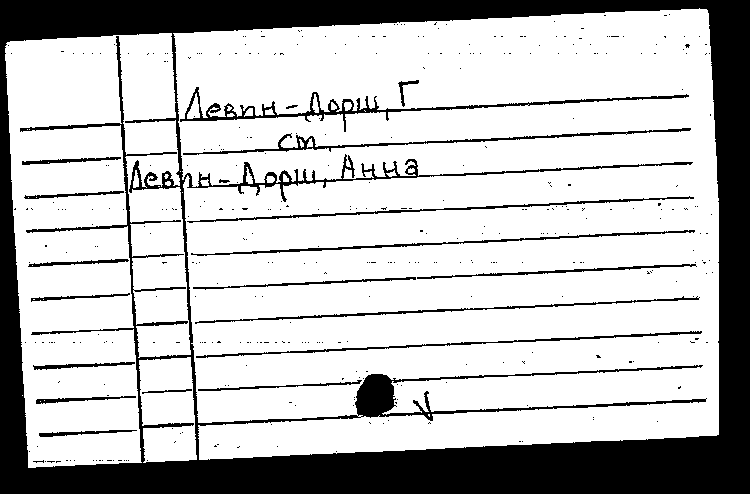 Левин-Дорш, Г
см.
Левин-Дорш, Анна